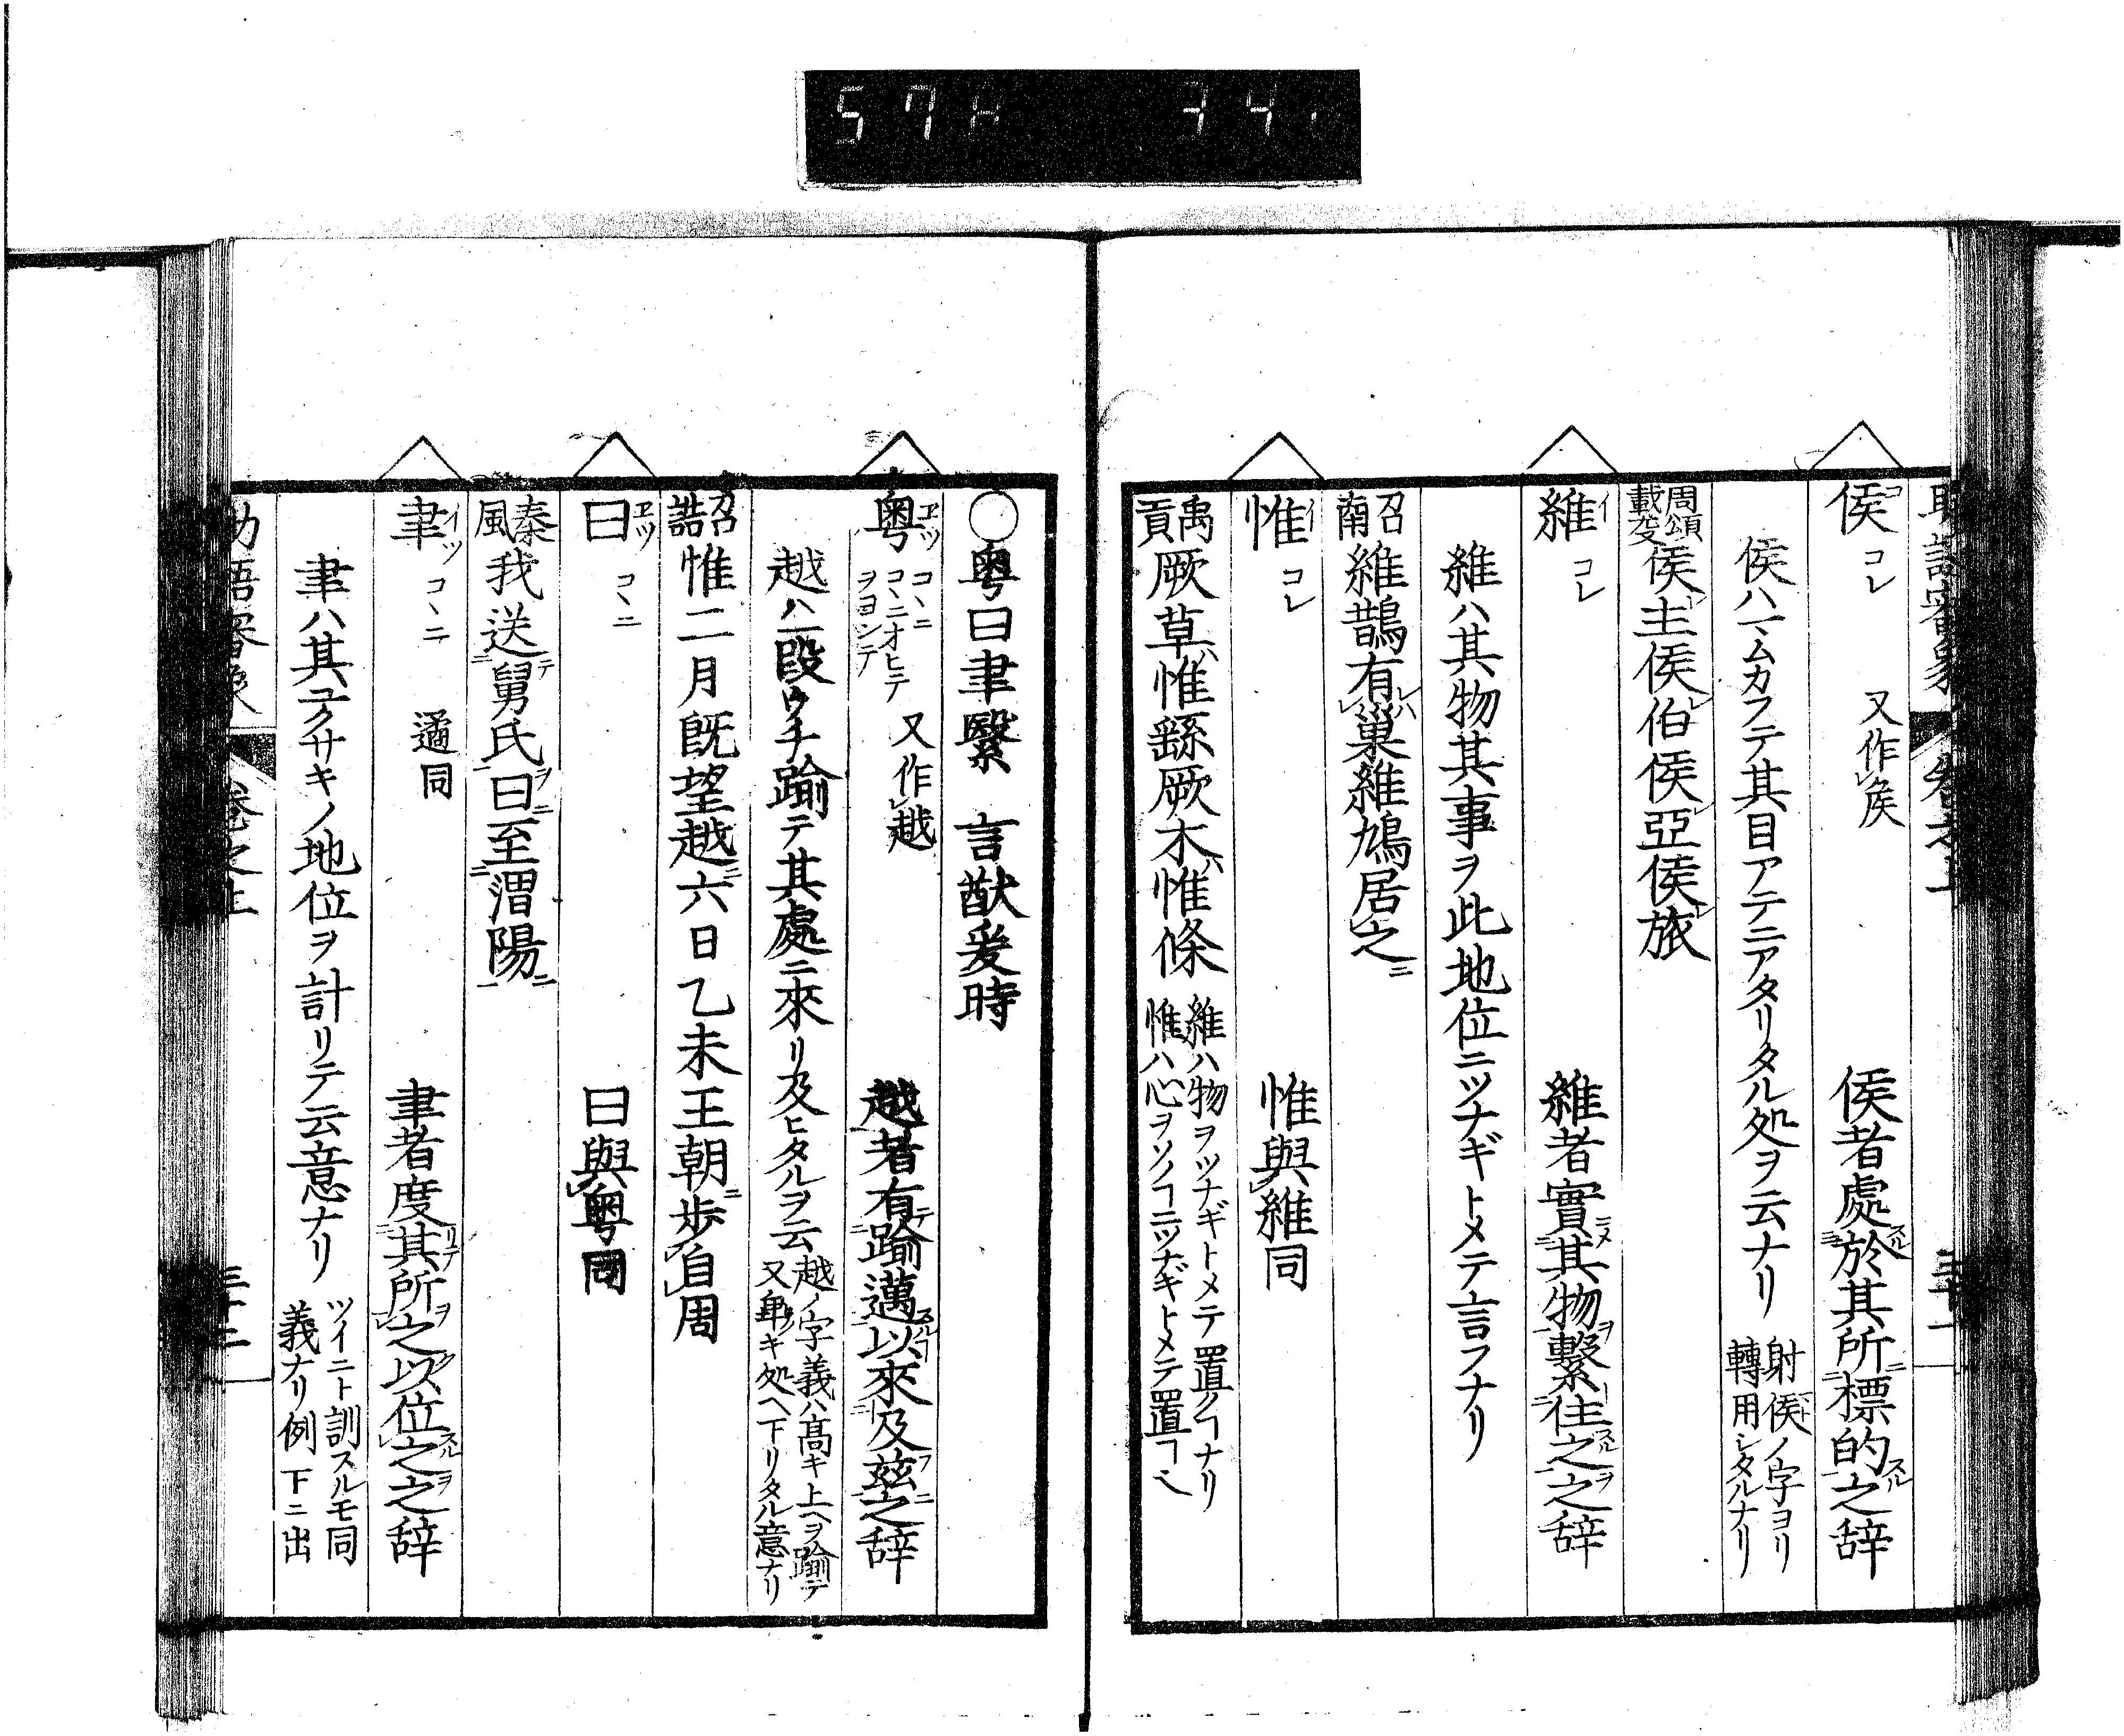 57H 34.
侯 コ コレ 又作矦 侯者處於其所標的之辞
侯ハムカフテ其目アテニアタリタル処ヲ云ナリ 射侯ノ字ヨリ轉用シタルナリ
周頌載芟 侯主侯伯侯亞侯旅
維 イ コレ 維者實其物繋住之之辞
維ハ其物其事ヲ此地位ニツナギトメテ言フナリ
召南 維鵲有巢維鳩居之
惟 イ コレ 惟與維同
禹貢 厥草惟繇厥木惟條 維ハ物ヲツナギトメテ置クヿナリ惟ハ心ヲソノヿニツナギトメテ置ヿ也
○粤曰聿繄 言猷爰時
粤 ヱツ コヽニ コヽニオヒテ ヲヨンデ 又作越 越者有踰邁以來及茲之辞
越ハ一段ウチ踰テ其處ニ來リ及ヒタルヲ云 越ノ字義ハ髙キ上ヘヲ踰テ又卑キ処ヘ下リタル意ナリ
召誥 惟二月既望越六日乙未王朝歩自周
曰 ヱツ コヽニ 曰與粤同
秦風 我送舅氏曰至渭陽
聿 イツ コヽニ 遹同 聿者度其所之以位之之辞
聿ハ其ユクサキノ地位ヲ計リテ云意ナリ ツイニト訓スルモ同義ナリ例下ニ出
卷之上 三十二